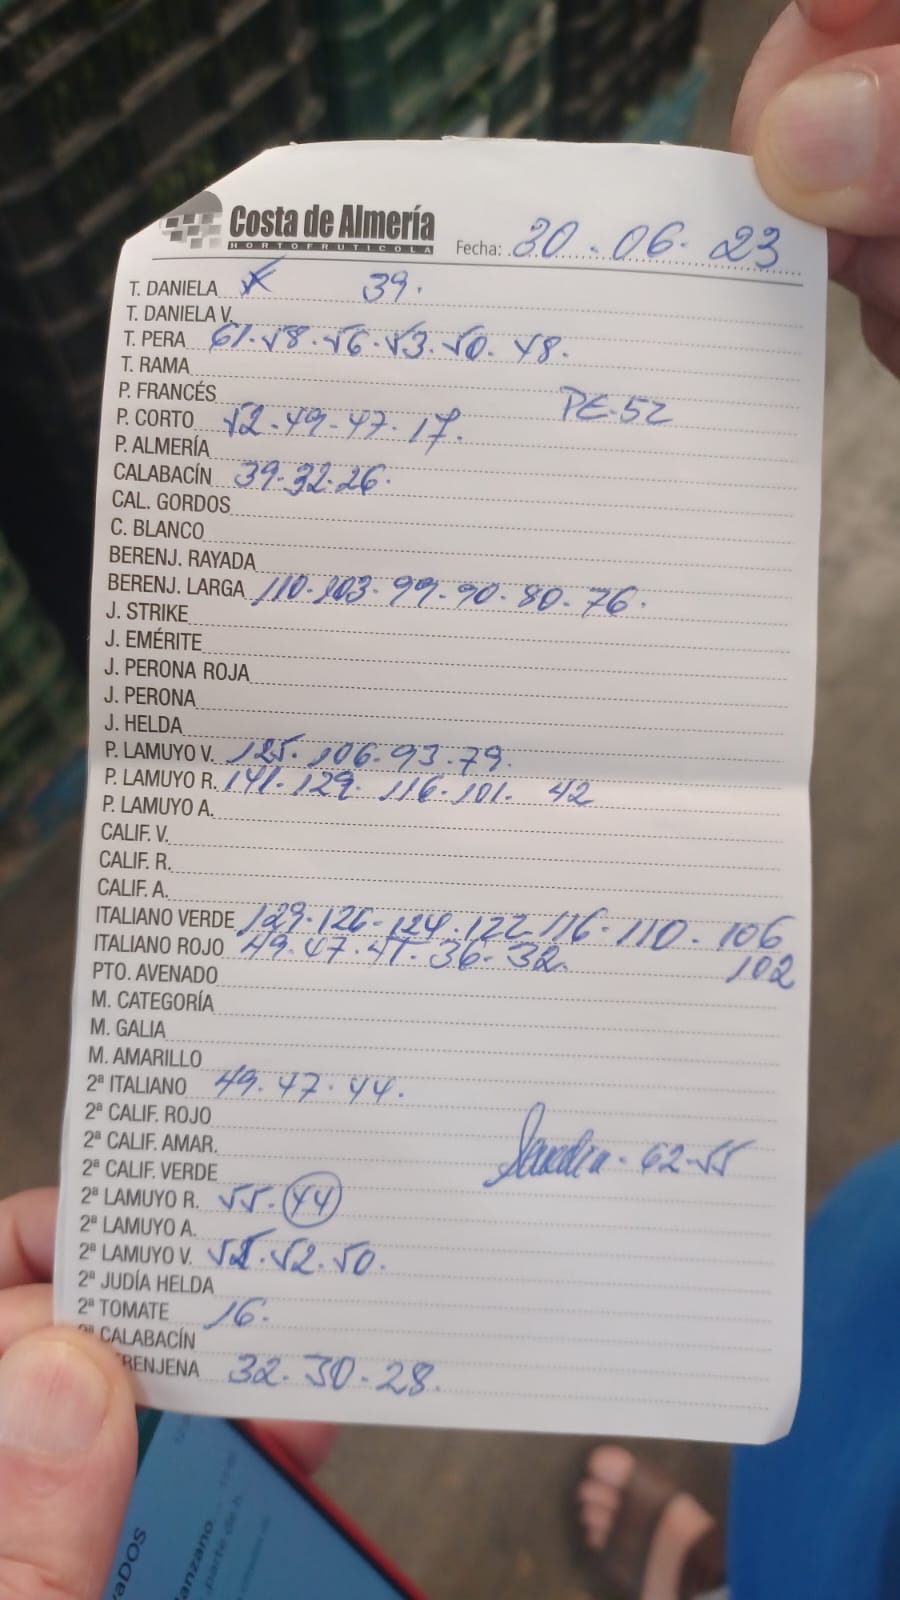 Costa de Almería
HORTOFRUTICOLA
Fecha: 30-06-23
T. DANIELA 39.
T. DANIELA V.
T. PERA 61.58.56.53.50.48.
T. RAMA
P. FRANCÉS PE-52
P. CORTO 52.49-47.17.
P. ALMERÍA
CALABACÍN 39.32.26.
CAL. GORDOS
C. BLANCO
BERENJ. RAYADA
BERENJ. LARGA 110.103.99.90.80.76.
J. STRIKE
J. EMÉRITE
J. PERONA ROJA
J. PERONA
J. HELDA
P. LAMUYO V. 125.106.93.79.
P. LAMUYO R. 141.129. 116.101. 42
P. LAMUYO A.
CALIF. V.
CALIF. R.
CALIF. A.
ITALIANO VERDE 129.126-124.122 116.110.106
ITALIANO ROJO 49.47.41.36.32. 102
PTO. AVENADO
M. CATEGORÍA
M. GALIA
M. AMARILLO
2ª ITALIANO 49.47.44.
2ª CALIF. ROJO
2ª CALIF. AMAR. 62-55
2ª CALIF. VERDE
2ª LAMUYO R. 55.44
2ª LAMUYO A.
2ª LAMUYO V. 52.50.
2ª JUDÍA HELDA
2ª TOMATE 16.
CALABACÍN
RENJENA 32.30.28.
vaDOS
anzano...
parte de